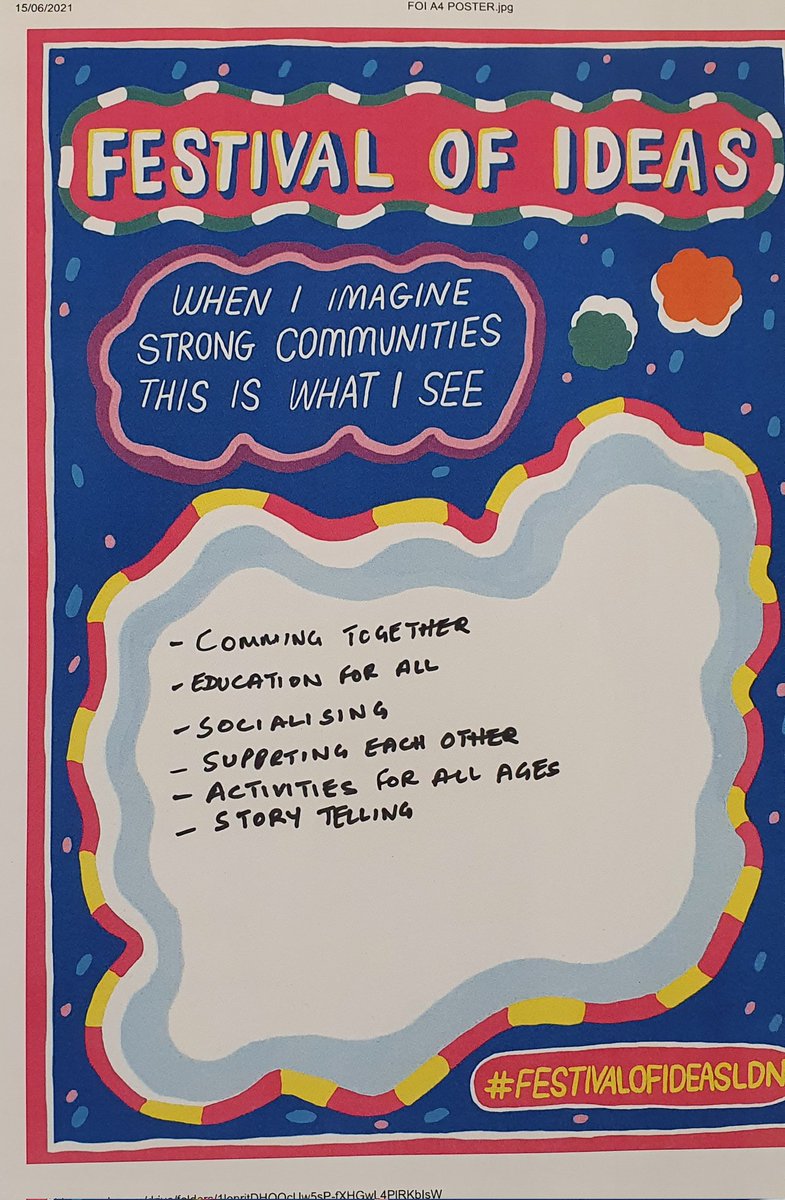 15/06/2021
FOI A4 POSTER.jpg
FESTIVAL OF IDEAS
WHEN I IMAGINE
STRONG COMMUNITIES
THIS IS WHAT I SEE
- COMMING TOGETHER
- EDUCATION FOR ALL
- SOCIALISING
- SUPPRTING EACH OTHER
- ACTIVITIES FOR ALL AGES
- STORY TELLING
#FESTIVALOFIDEASLDN